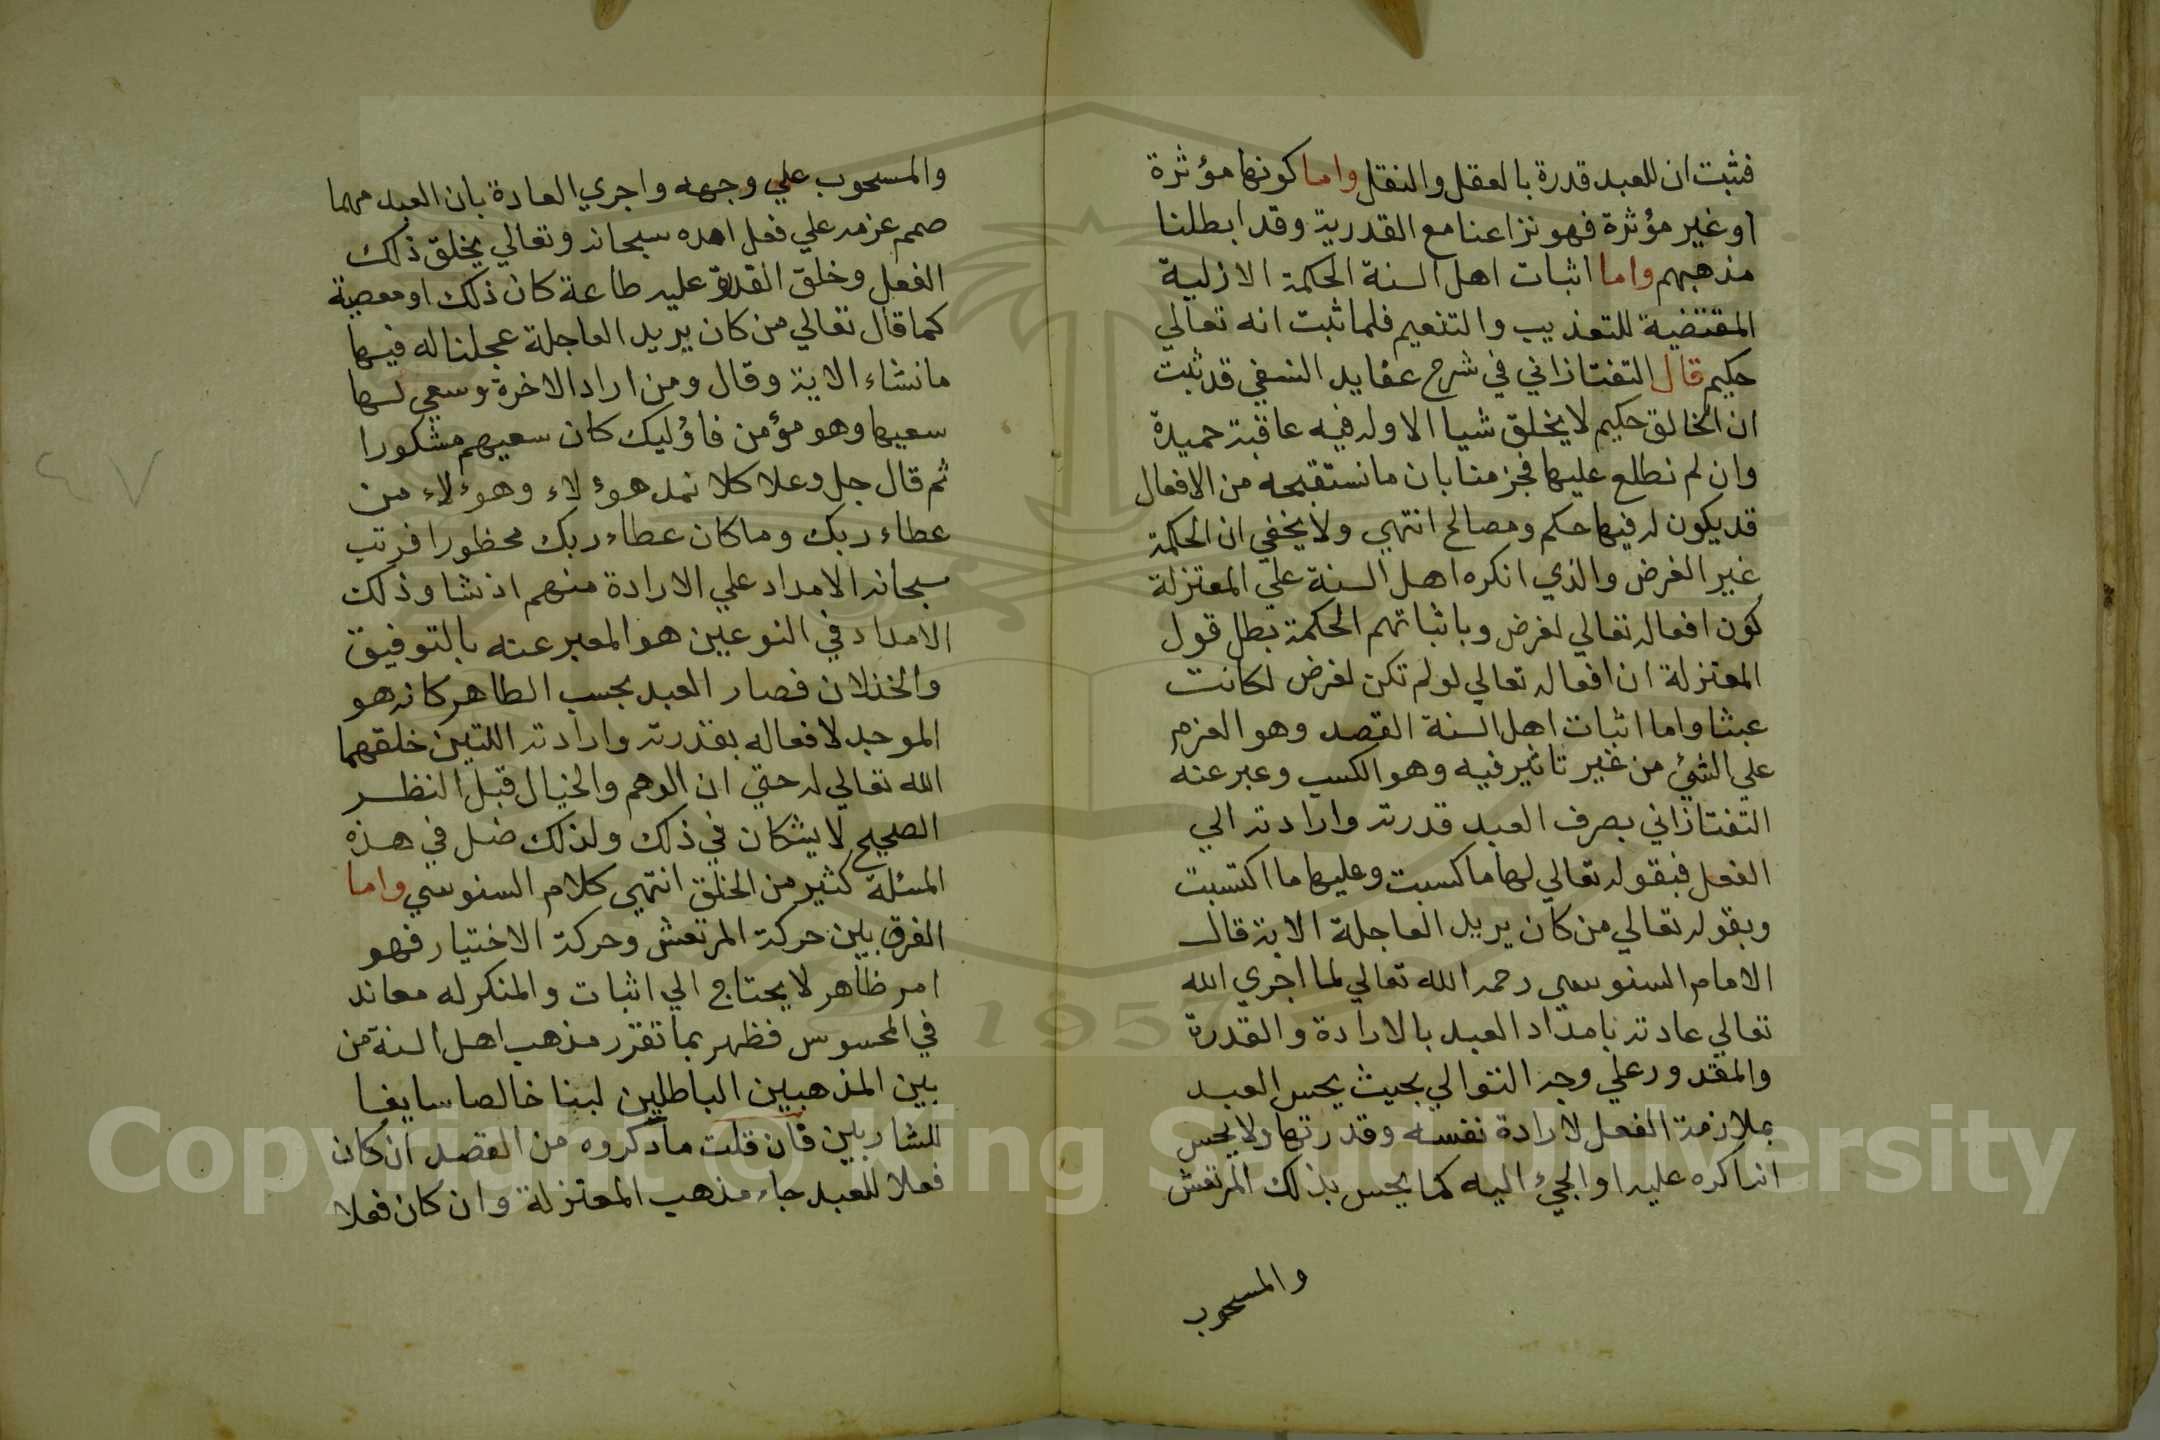 فثبت ان للعبد قدرة بالعقل والنقل واما كونها مؤثرة
او غير مؤثرة فهو نزاعنا مع القدرية وقد ابطلنا
مذهبهم واما اثبات اهل السنة الحكمة الازلية
المقتضية للتعذيب والتنعيم فلما ثبت انه تعالي
حكيم قال التفتازاني في شرح عقايد النسفي قد ثبت
ان الخالق حكيم لا يخلق شيا الا وله فيه عاقبة حميدة
وان لم نطلع عليها فجزمنا بان ما نستقبحه من الافعال
قد يكون له فيها حكم ومصالح انتهي ولا يخفي ان الحكمة
غير الغرض والذي انكره اهل السنة علي المعتزلة
كون افعاله تعالي لغرض وباثباتهم الحكمة بطل قول
المعتزلة ان افعاله تعالي لو لم تكن لغرض لكانت
عبثا واما اثبات اهل السنة القصد وهو العزم
علي الشئ من غير تاثير فيه وهو الكسب وعبر عنه
التفتازاني بصرف العبد قدرته وارادته الي
الفعل فبقوله تعالي لها ما كسبت وعليها ما اكتسبت
وبقوله تعالي من كان يريد العاجلة الاية قال
الامام السنوسي رحمه الله تعالي لما اجري الله
تعالي عادته بامداد العبد بالارادة والقدرة
والمقدور علي وجه التوالي بحيث يحس العبد
بملازمة الفعل لارادة نفسه وقدرتها ولا يحس
انه اكره عليه او الجئ اليه كما يحس بذلك المرتعش
والمسحوب
والمسحوب علي وجهه واجري العادة بان العبد مهما
صمم عزمه علي فعل امده سبحانه وتعالي يخلق ذلك
الفعل وخلق القدرة عليه طاعة كان ذلك او معصية
كما قال تعالي من كان يريد العاجلة عجلنا له فيها
ما نشاء الاية وقال ومن اراد الاخرة وسعي لها
سعيها وهو مؤمن فاؤليك كان سعيهم مشكورا
ثم قال جل وعلا كلا نمد هوؤلاء وهوؤلاء من
عطاء ربك وما كان عطاء ربك محظورا فرتب
سبحانه الامداد علي الارادة منهم اذ نشا وذلك
الامداد في النوعين هو المعبر عنه بالتوفيق
والخذلان فصار العبد بحسب الظاهر كانه هو
الموجد لافعاله بقدرته وارادته اللتين خلقهما
الله تعالي له حتي ان الوهم والخيال قبل النظر
الصحيح لا يشكان في ذلك ولذلك ضل في هذه
المسئلة كثير من الخلق انتهي كلام السنوسي واما
الفرق بين حركة المرتعش وحركة الاختيار فهو
امر ظاهر لا يحتاج الي اثبات والمنكر له معاند
في المحسوس فظهر بما تقرر مذهب اهل السنة من
بين المذهبين الباطلين لبنا خالصا سايغا
للشاربين فان قلت ما ذكروه من القصد ان كان
فعلا للعبد جاء مذهب المعتزلة وان كان فعلا
٤٧
1957
Copyright © King Saud University